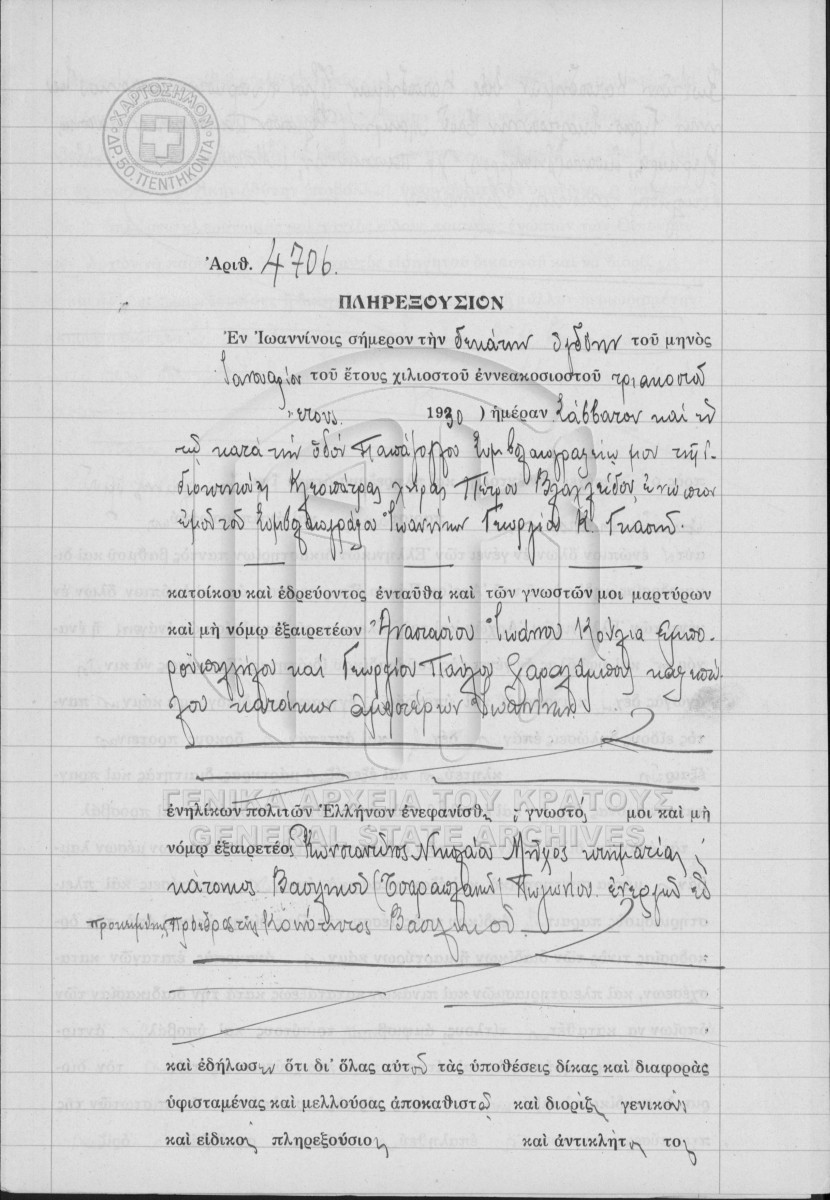 ΧΑΡΤΟΣΗΜΟΝ
ΔΡ. 50. ΠΕΝΤΗΚΟΝΤΑ
Ἀριθ. 4706.
ΠΛΗΡΕΞΟΥΣΙΟΝ
Ἐν Ἰωαννίνοις σήμερον τὴν δεκάτην ὀγδόην τοῦ μηνὸς
Ἰανουαρίου τοῦ ἔτους χιλιοστοῦ ἐννεακοσιοστοῦ τριακοστοῦ
ἔτους 1930 ) ἡμέραν Σάββατον καὶ ἐν
τῷ κατὰ τὴν ὁδὸν Συμβολαιογραφείῳ μου τῆς ἰ-
διοκτησίας Κλεοπάτρας χήρας Πέτρου ἐνώπιον
ἐμοῦ τοῦ Συμβολαιογράφου Ἰωαννίνων Γεωργίου Κ.
κατοίκου καὶ ἑδρεύοντος ἐνταῦθα καὶ τῶν γνωστῶν μοι μαρτύρων
καὶ μὴ νόμῳ ἐξαιρετέων Ἀναστασίου Ἰωάννου Κούλια ἐμπο-
ροϋπαλλήλου καὶ Γεωργίου Παύλου Χαραλάμπους
κατοίκων ἀμφοτέρων Ἰωαννίνων
ΓΕΝΙΚΑ ΑΡΧΕΙΑ ΤΟΥ ΚΡΑΤΟΥΣ
ἐνηλίκων πολιτῶν Ἑλλήνων ἐνεφανίσθη ὁ γνωστός μοι καὶ μὴ
GENERAL STATE ARCHIVES
νόμῳ ἐξαιρετέος Κωνσταντῖνος Νικολάου κτηματίας
κάτοικος Βασιλικοῦ (Τσαραπλανᾶ) Πωγωνίου ἐνεργῶν ἐν
προκειμένῳ ὡς Πρόεδρος τῆς Κοινότητος Βασιλικοῦ.
καὶ ἐδήλωσεν ὅτι δι' ὅλας αὐτοῦ τὰς ὑποθέσεις δίκας καὶ διαφορὰς
ὑφισταμένας καὶ μελλούσας ἀποκαθιστᾷ καὶ διορίζει γενικὸν
καὶ εἰδικὸν πληρεξούσιον καὶ ἀντίκλητόν του